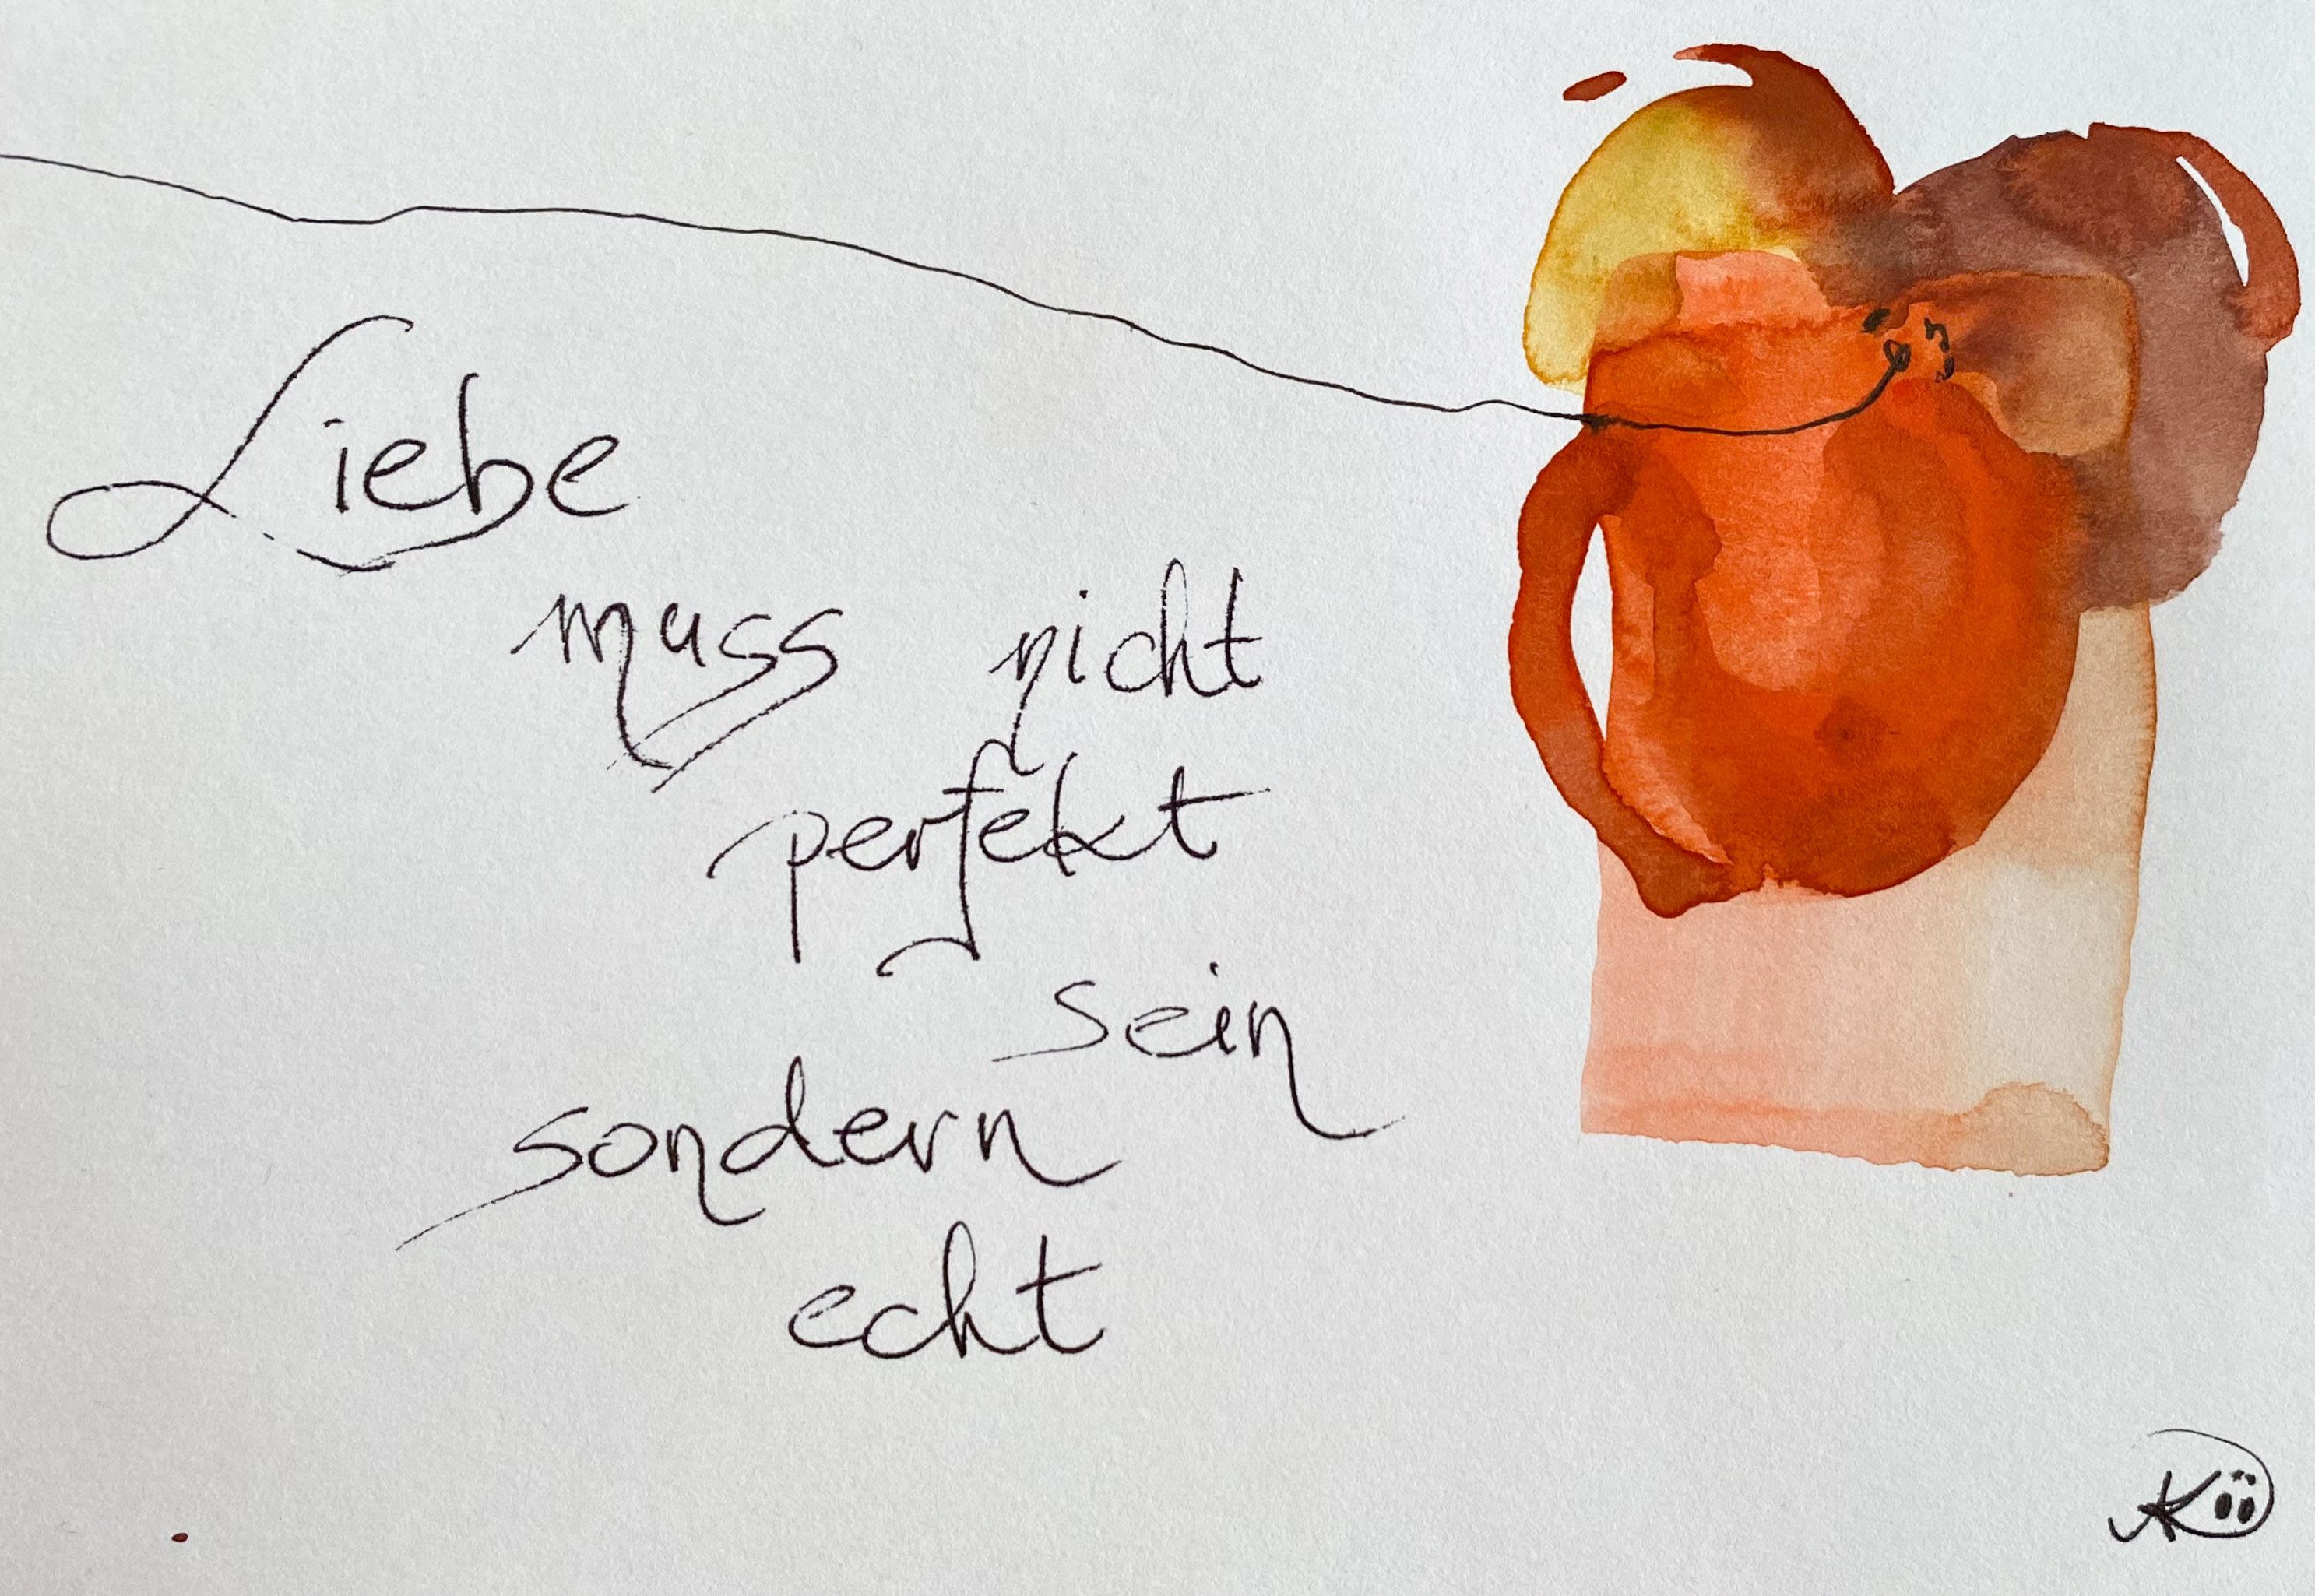 Liebe
muss nicht
perfekt
sein
sondern
echt